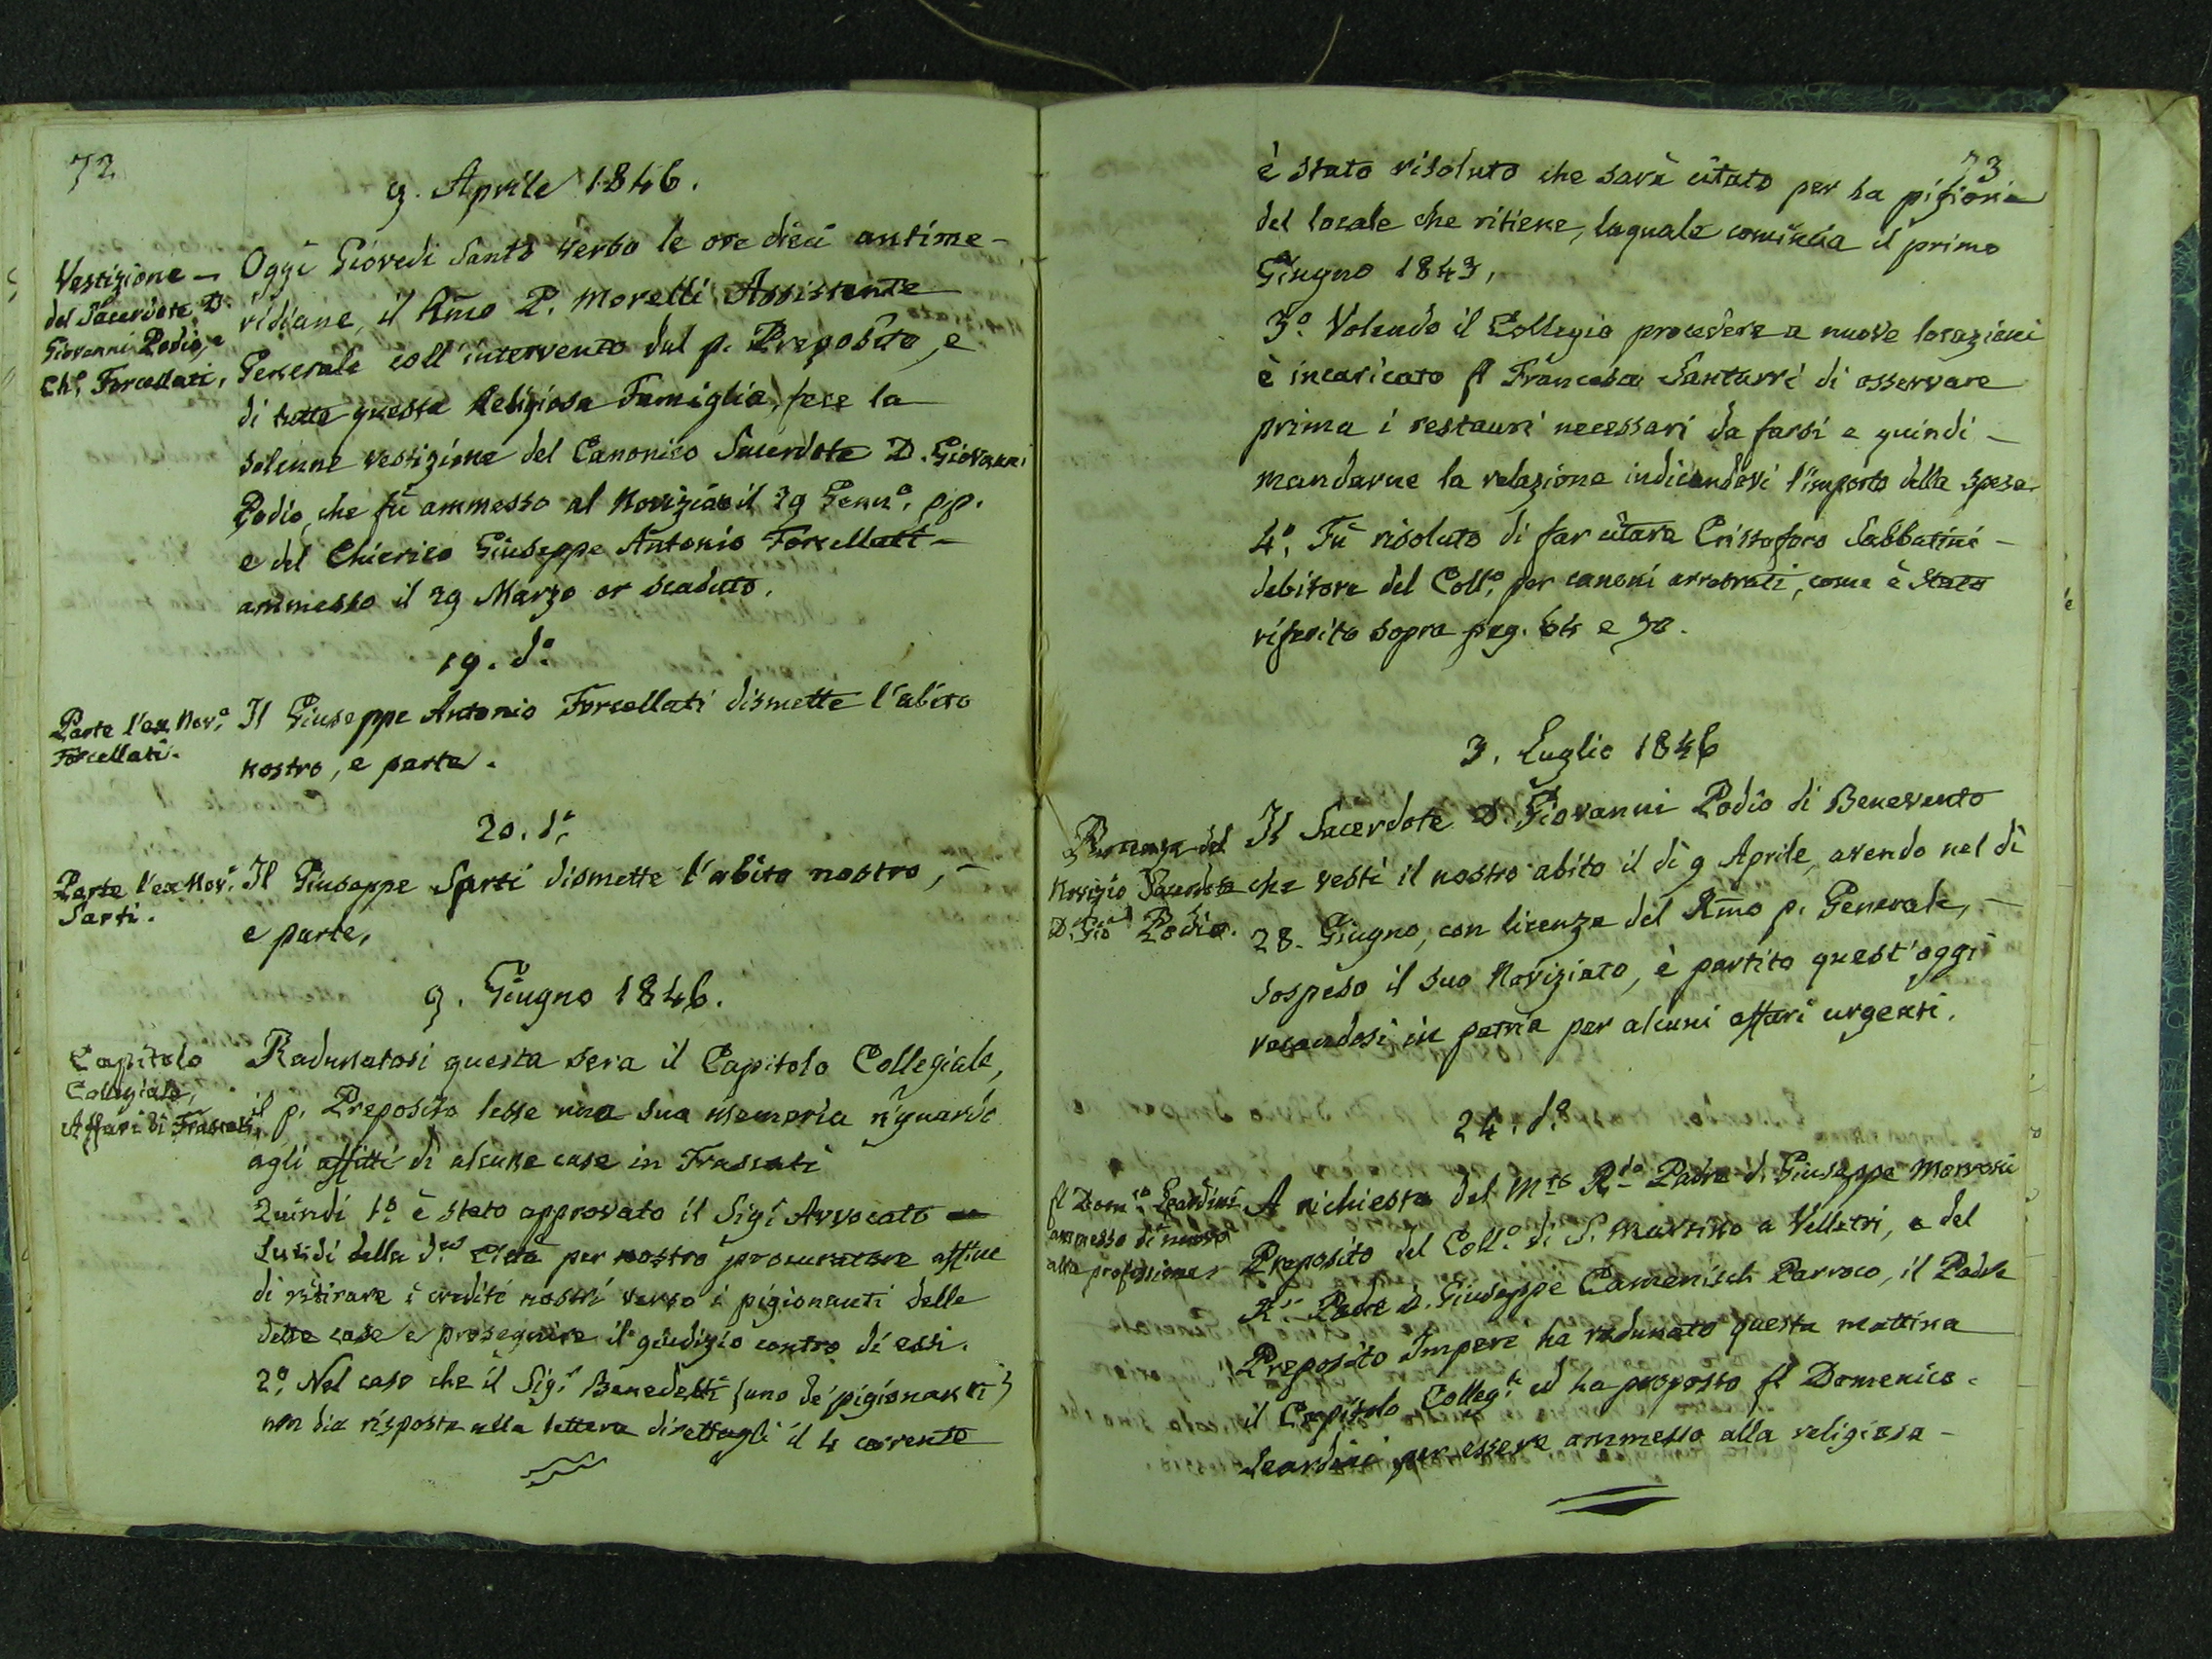 72
9. Aprile 1846.
Vestizione –
del Sacerdote D.
Giovanni Podio, e
Ch.º Forcellati,
Oggi Giovedi Santo verso le ore dieci antime-
ridiane, il Rm̃o P. Morelli Assistente
Generale coll'intervento del p. Preposito, e
di tutta questa Religiosa Famiglia, fece la
solenne vestizione del Canonico Sacerdote D. Giovanni
Podio, che fù ammesso al Noviziato il 29 Genn.º pp.
e del Chierico Giuseppe Antonio Forcellati –
ammesso il 29 Marzo or scaduto.
19. d.º
Parte l'ex Nov.º
Forcellati.
Il Giuseppe Antonio Forcellati dismette l'abito
nostro, e parte.
20. d.º
Parte l'ex Nov.º
Sarti.
Il Giuseppe Sarti dismette l'abito nostro, –
e parte.
9. Giugno 1846.
Capitolo
Collegiale,
Affari di Frascati,
Radunatosi questa sera il Capitolo Collegiale,
il p. Preposito lesse una sua memoria riguardo
agli affitti di alcune case in Frascati
Quindi 1.º è stato approvato il Sig.r Avvocato
della d.ta Città per nostro procuratore affine
di ritirare i crediti nostri verso i pigionanti delle
dette case e proseguire il giudizio contro di essi.
2.º Nel caso che il Sig.r Benedetti (uno de' pigionanti)
non dia risposta alla lettera direttagli il 4 corrente
73
è stato risoluto che sarà citato per la pigione
del locale che ritiene, la quale comincia il primo
Giugno 1843,
3.º Volendo il Collegio procedere a nuove locazioni
è incaricato fl Francesco Santurri di osservare
prima i restauri necessari da farsi e quindi –
mandarne la relazione indicandovi l'importo della spesa.
4.º Fù risoluto di far citare Cristoforo Sabbatini –
debitore del Coll.º per canoni arretrati, come è stato
riferito sopra pag. 64 e 70.
3. Luglio 1846
Partenza del
Novizio Sacerdote
D. Gio Podio.
Il Sacerdote D. Giovanni Podio di Benevento
che vestì il nostro abito il dì 9 Aprile, avendo nel dì
28. Giugno, con licenza del Rm̃o p. Generale, –
sospeso il suo Noviziato, è partito quest'oggi
recandosi in patria per alcuni affari urgenti.
24. d.º
fl Dom.co Leardini
ammesso di nuovo
alla professione
A richiesta del M.to R.do Padre d. Giuseppe
Preposito del Coll.º di S. Martino a Velletri, e del
Padre D. Giuseppe Camenisch Parroco, il Padre
Preposito Imperi ha radunato questa mattina
il Capitolo Colleg.le ed ha proposto fl Domenico
Leardini per essere ammesso alla religiosa –